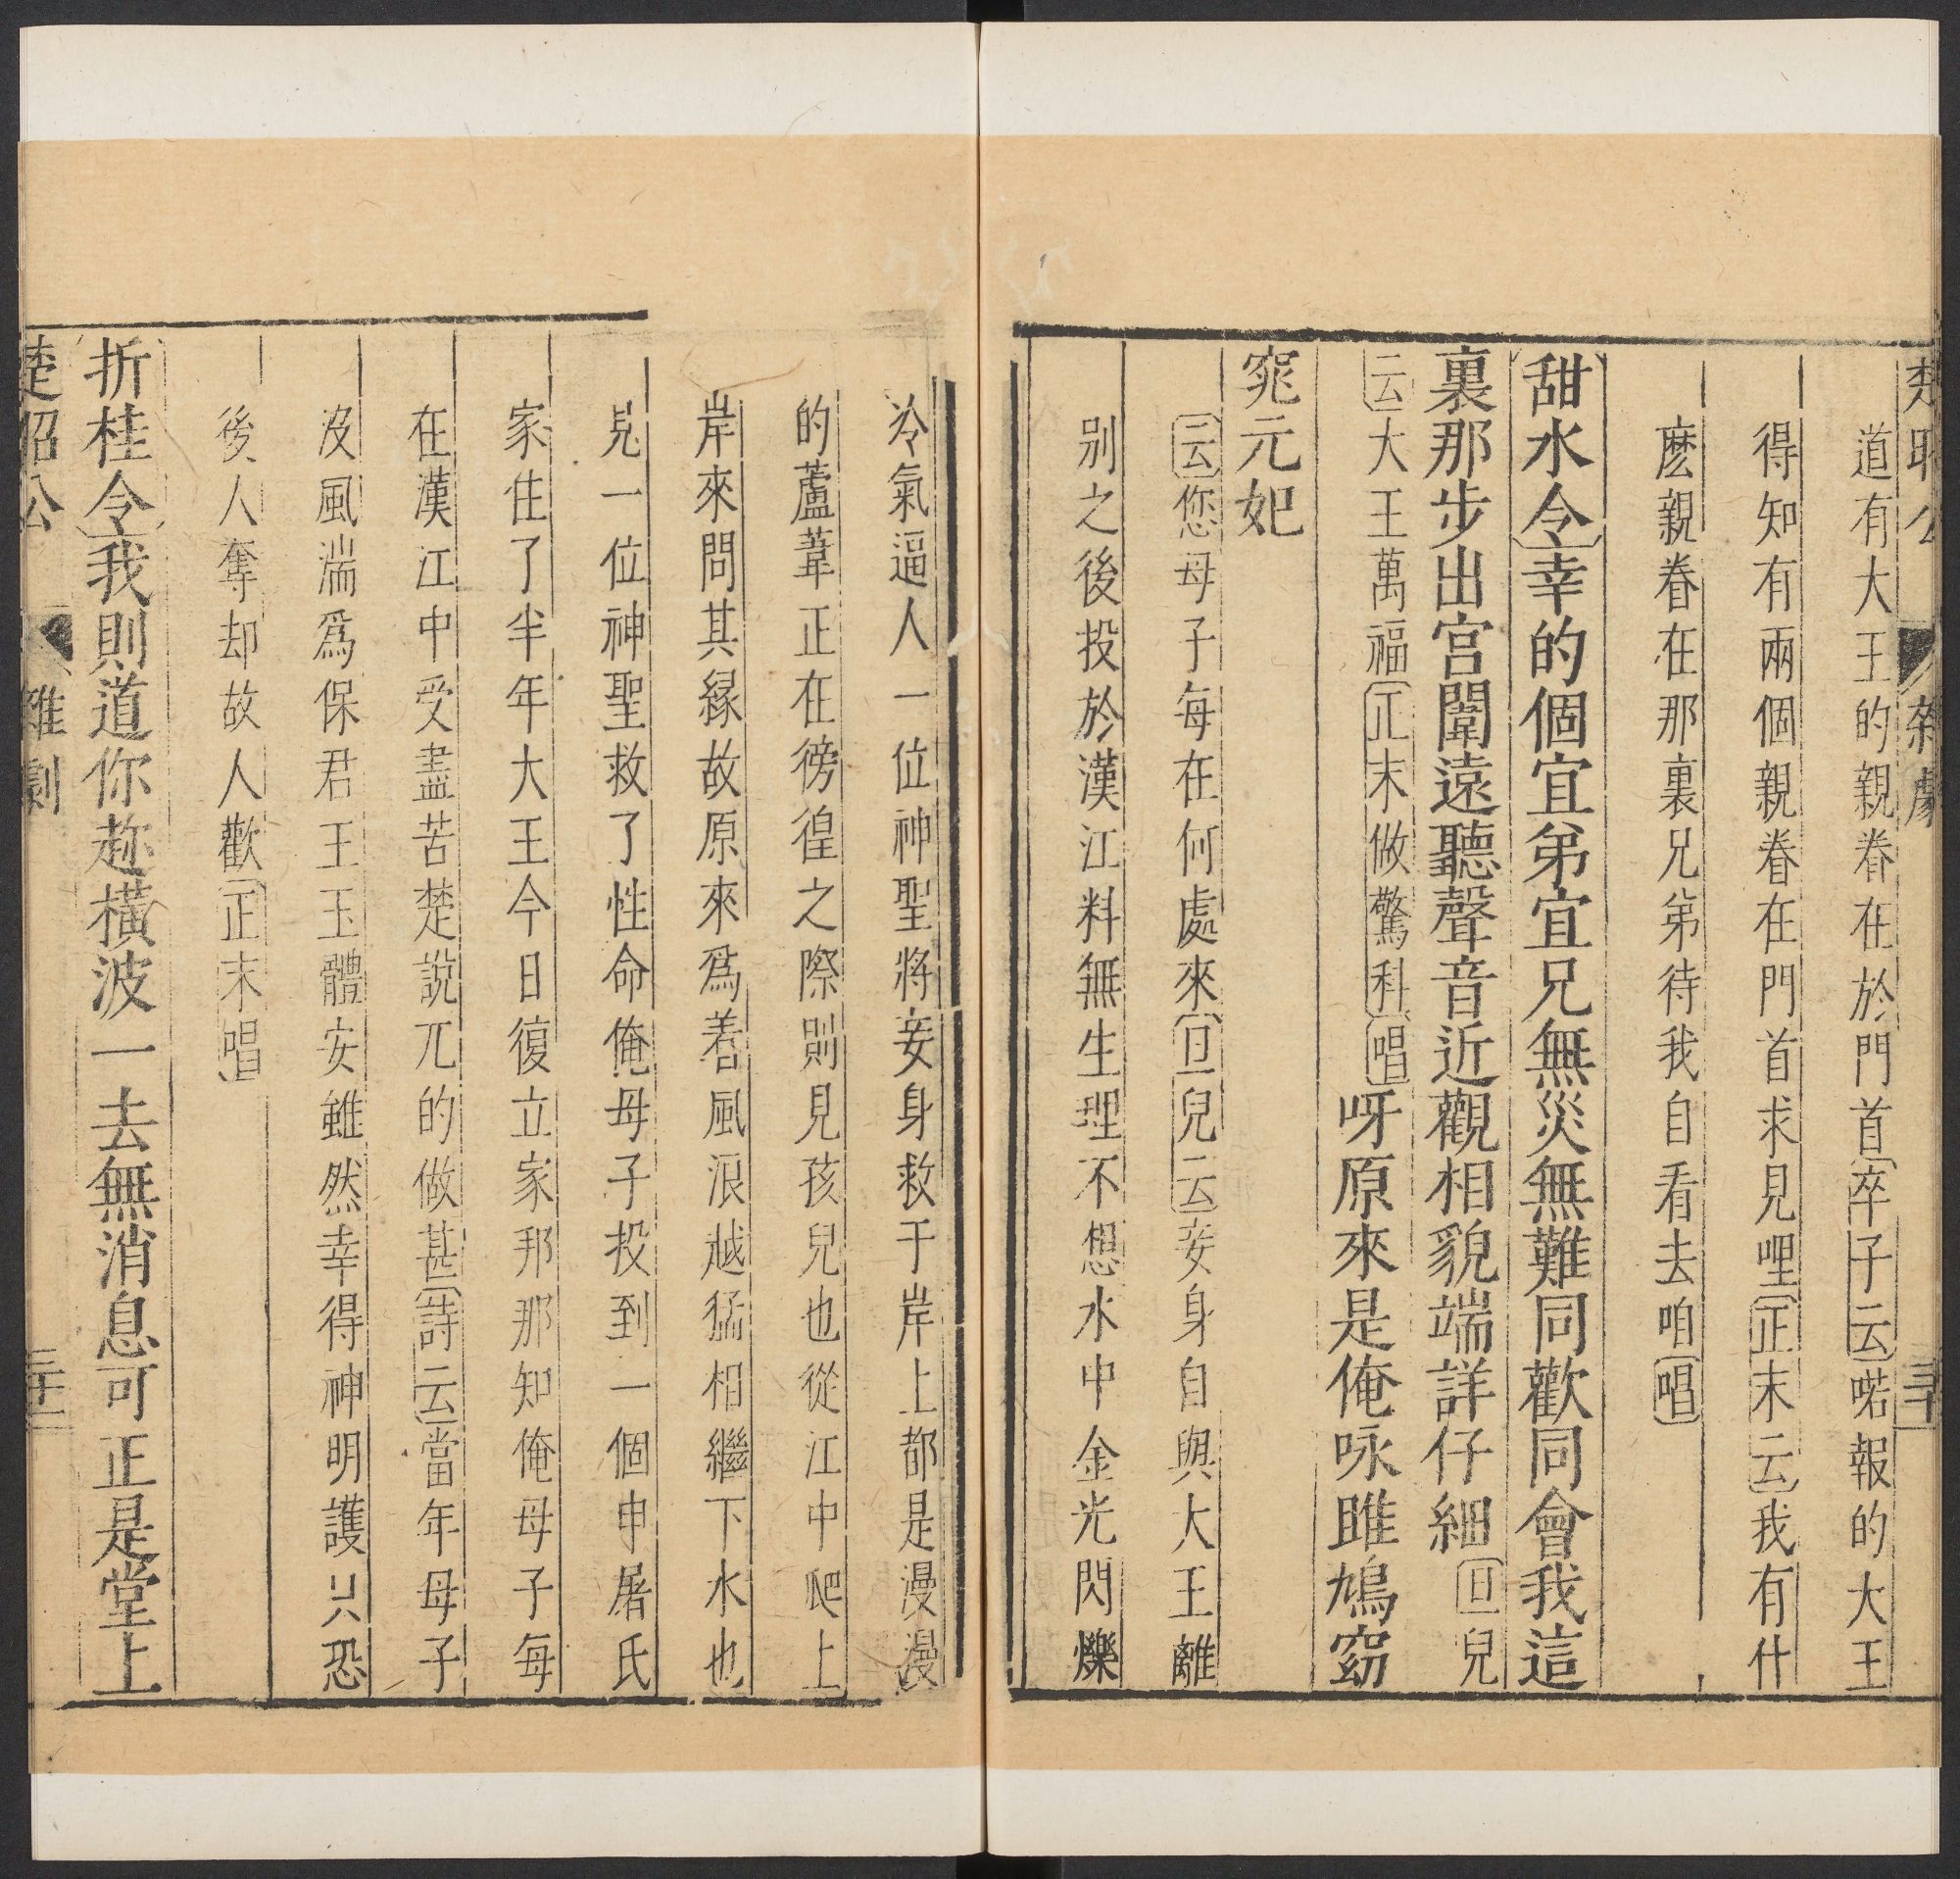 楚昭公　雜劇　三十
道有大王的親眷在於門首〔卒子云〕喏報的大王
得知有兩個親眷在門首求見哩〔正末云〕我有什
麽親眷在那裏兄弟待我自看去咱〔唱〕
〔甜水令〕幸的個宜弟宜兄無災無難同歡同會我這
裏那步出宫闈遠聽聲音近觀相貌端詳仔細〔旦兒
云〕大王萬福〔正末做驚科〕〔唱〕呀原來是俺咏雎鳩窈
窕元妃
〔云〕您母子每在何處來〔旦兒云〕妾身自與大王離
别之後投於漢江料無生理不想水中金光閃爍
冷氣逼人一位神聖將妾身救于岸上都是漫漫
的蘆葦正在徬徨之際則見孩兒也從江中爬上
岸來問其縁故原來爲着風浪越猛相繼下水也
見一位神聖救了性命俺母子投到一個申屠氏
家住了半年大王今日復立家邦那知俺母子每
在漢江中受盡苦楚説兀的做甚〔詩云〕當年母子
没風湍爲保君王玉體安雖然幸得神明護只恐
後人奪却故人歡〔正末唱〕
〔折桂令〕我則道你趂橫波一去無消息可正是堂上
楚昭公　雜劇　三十一